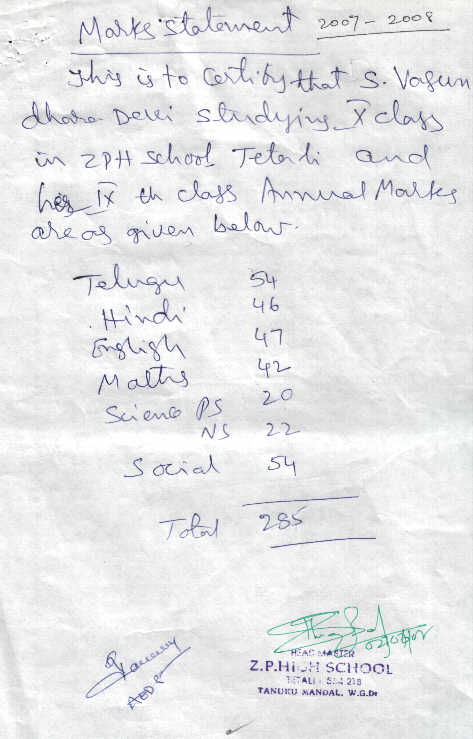 Marks Statement 2007-2008
This is to Certify that S. Vasun
dhara Devi studying X class
in ZPH School Tetali and
her IX th class Annual Marks
are as given below.
Telugu 54
Hindi 46
English 47
Maths 42
Science PS 20
NS 22
Social 54
Total 285
HEAD MASTER
Z.P.HIGH SCHOOL
TETALI
TANUKU MANDAL, W.G.Dt